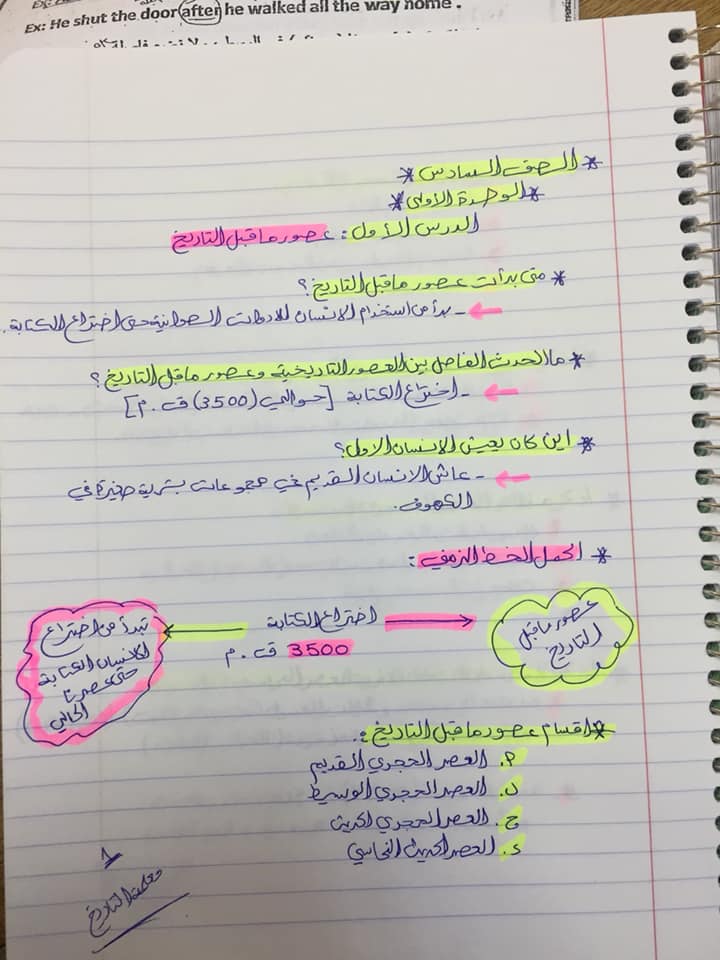 Ex: He shut the door after he walked all the way home .
* الصف السادس *
* الوحدة الأولى *
الدرس الأول : عصور ما قبل التاريخ
* متى بدأت عصور ما قبل التاريخ ؟
- بدأ من استخدام الانسان للادوات الصوانية حتى اختراع الكتابة .
* ما الحدث الفاصل بين العصور التاريخية وعصور ما قبل التاريخ ؟
- اختراع الكتابة [حوالي (3500) ق . م]
* اين كان يعيش الانسان الاول ؟
- عاش الانسان القديم في مجموعات بشرية صغيرة في
الكهوف .
* اكمل الخط الزمني :
عصور ما قبل
التاريخ
اختراع الكتابة
3500 ق . م
تبدأ من اختراع
الانسان الكتابة
حتى عصرنا
الحالي
* اقسام عصور ما قبل التاريخ :
أ. العصر الحجري القديم
ب. العصر الحجري الوسيط
ج. العصر الحجري الحديث
د. العصر الحديث النحاسي
1
معلمة التاريخ